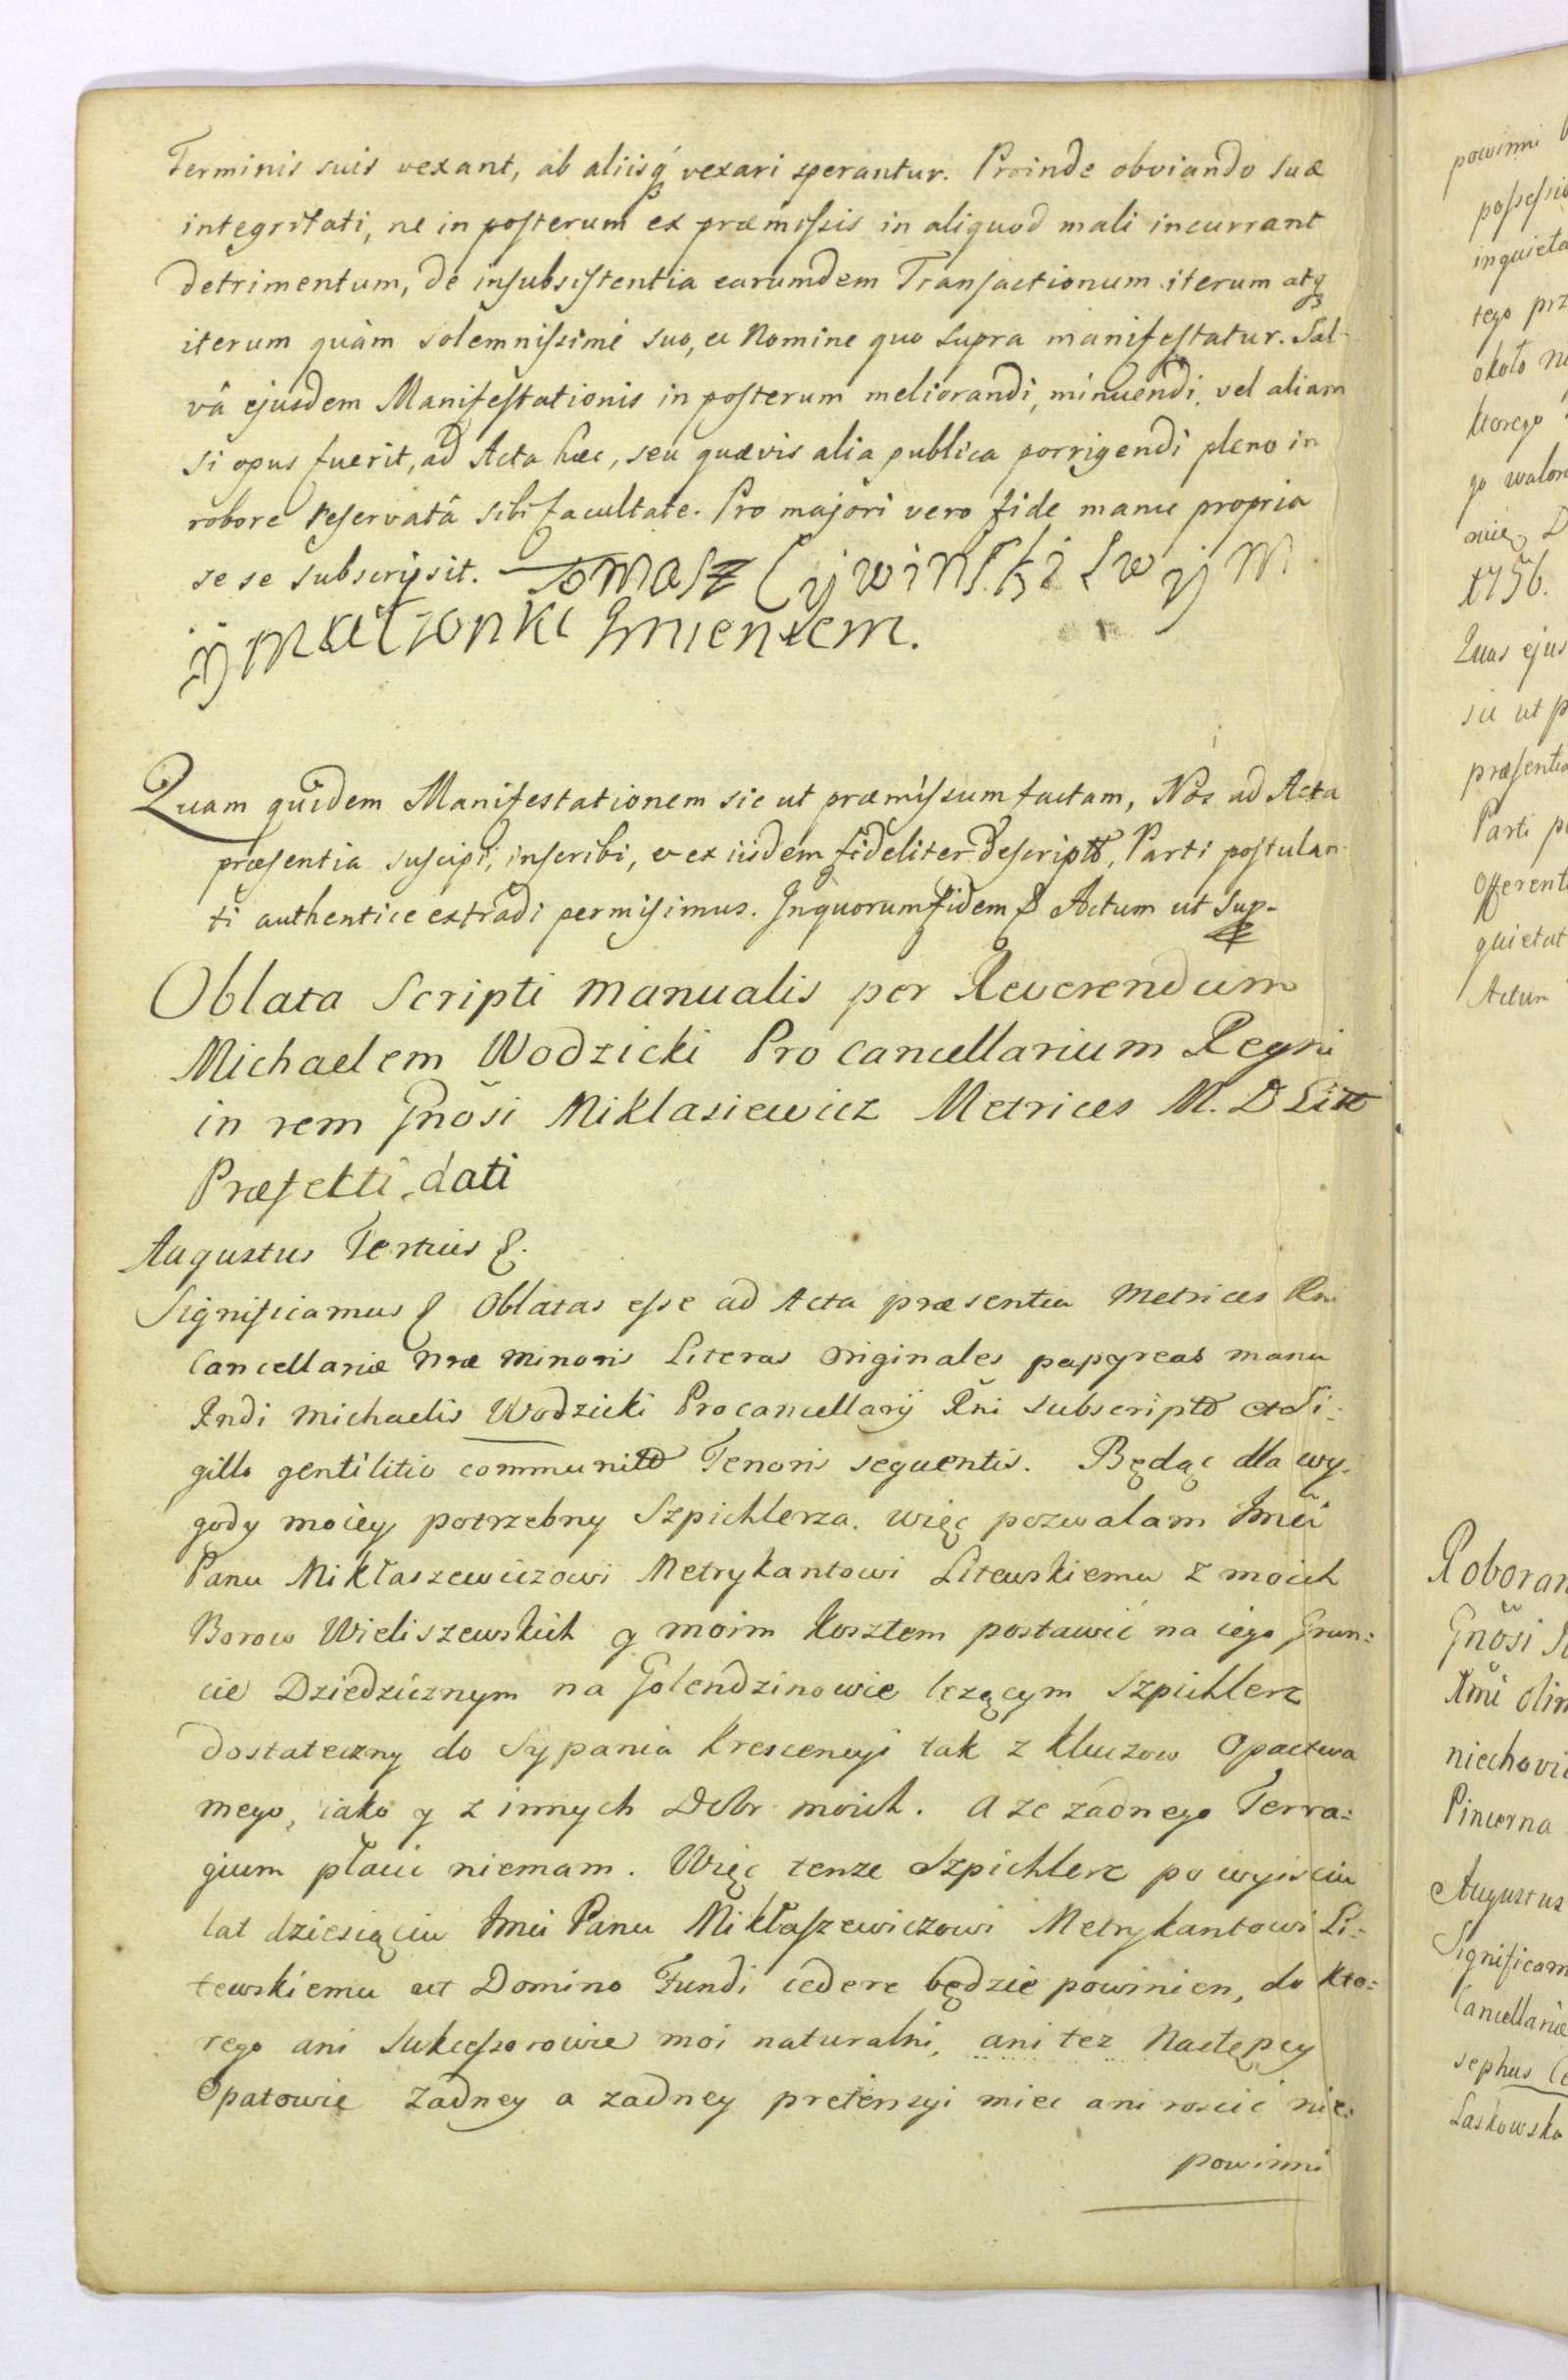 Terminis suis vexant, ab aliisq́ vexari sperantur. Proinde obviando suæ
integritati, ne in posterum ex præmissis in aliquod mali incurrant
detrimentum, de insubsistentia earumdem Transactionum iterum atq
iterum quàm solemnissime suo, et Nomine quo supra manifestatur. Sal-
vâ ejusdem Manifestationis in posterum meliorandi, minuendi, vel aliam
si opus fuerit, ad Acta hæc, seu quævis alia publica porrigendi pleno in
robore reservatâ sibi facultate. Pro majori vero fide manu propria
se se subscripsit. Tomasz Cywinski swym
ÿ małzonki Imieniem.
Quam quidem Manifestationem sic ut præmissum factam, Nos ad Acta
præsentia suscipi, inscribi, et ex iisdem fideliter descriptã, Parti postulan-
ti authentice extradi permisimus. In quorum fidem & Actum ut Sup-
Oblata Scripti manualis per Reverendum
Michaelem Wodzicki Procancellarium Regni
in rem Gnősi Miklasiewicz Metrices M. D Litt
Præfecti dati
Augustus Tertius &.
Significamus & Oblatas esse ad Acta præsentia Metrices Rni
Cancellariæ Nræ minoris Literas Originales papyreas manu
Rndi Michaelis Wodzicki Procancellarÿ Rñi subscriptas et Si:
gillo gentilitio communitas Tenoris sequentis. Będąc dla wy-
gody moiey potrzebny Szpichlerza. więc pozwalam Jmći
Panu Mikłaszewiczowi Metrykantowi Litewskiemu z moich
Borow Wieliszewskich y moim kosztem postawić na iego Grun:
cie Dziedzicznym na Golendzinowie lezącym Szpichlerz
dostateczny do Sypania krescencyi tak z kluczow Opactwa
mego, iako y z innych Dobr moich. A ze zadnego Terra:
gium płacic niemam. Więc tenze Szpichlerz po wyisciu
lat dziesiąciu Jmći Panu Mikłaszewiczowi Metrykantowi Li:
tewskiemu ut Domino Fundi cedere będzie powinien, do kto:
rego ani Sukcessorowie moi naturalni, ani tez Nastepcy
Opatowie Zadney a zadney pretensyi miec ani roscić nie:
powinni
powinni
possessio
inquieta
tego prz
około
ktorego
go walor
nię D
1756.
Quas ejus
sic ut p
præsentia
Parti po
Offerenti
quietat
Actum
Roboran
Gnősi
Rmi olim
niechovi
Pincerna
Augustus
Significam
Cancellariæ
sephus
Laskowsko